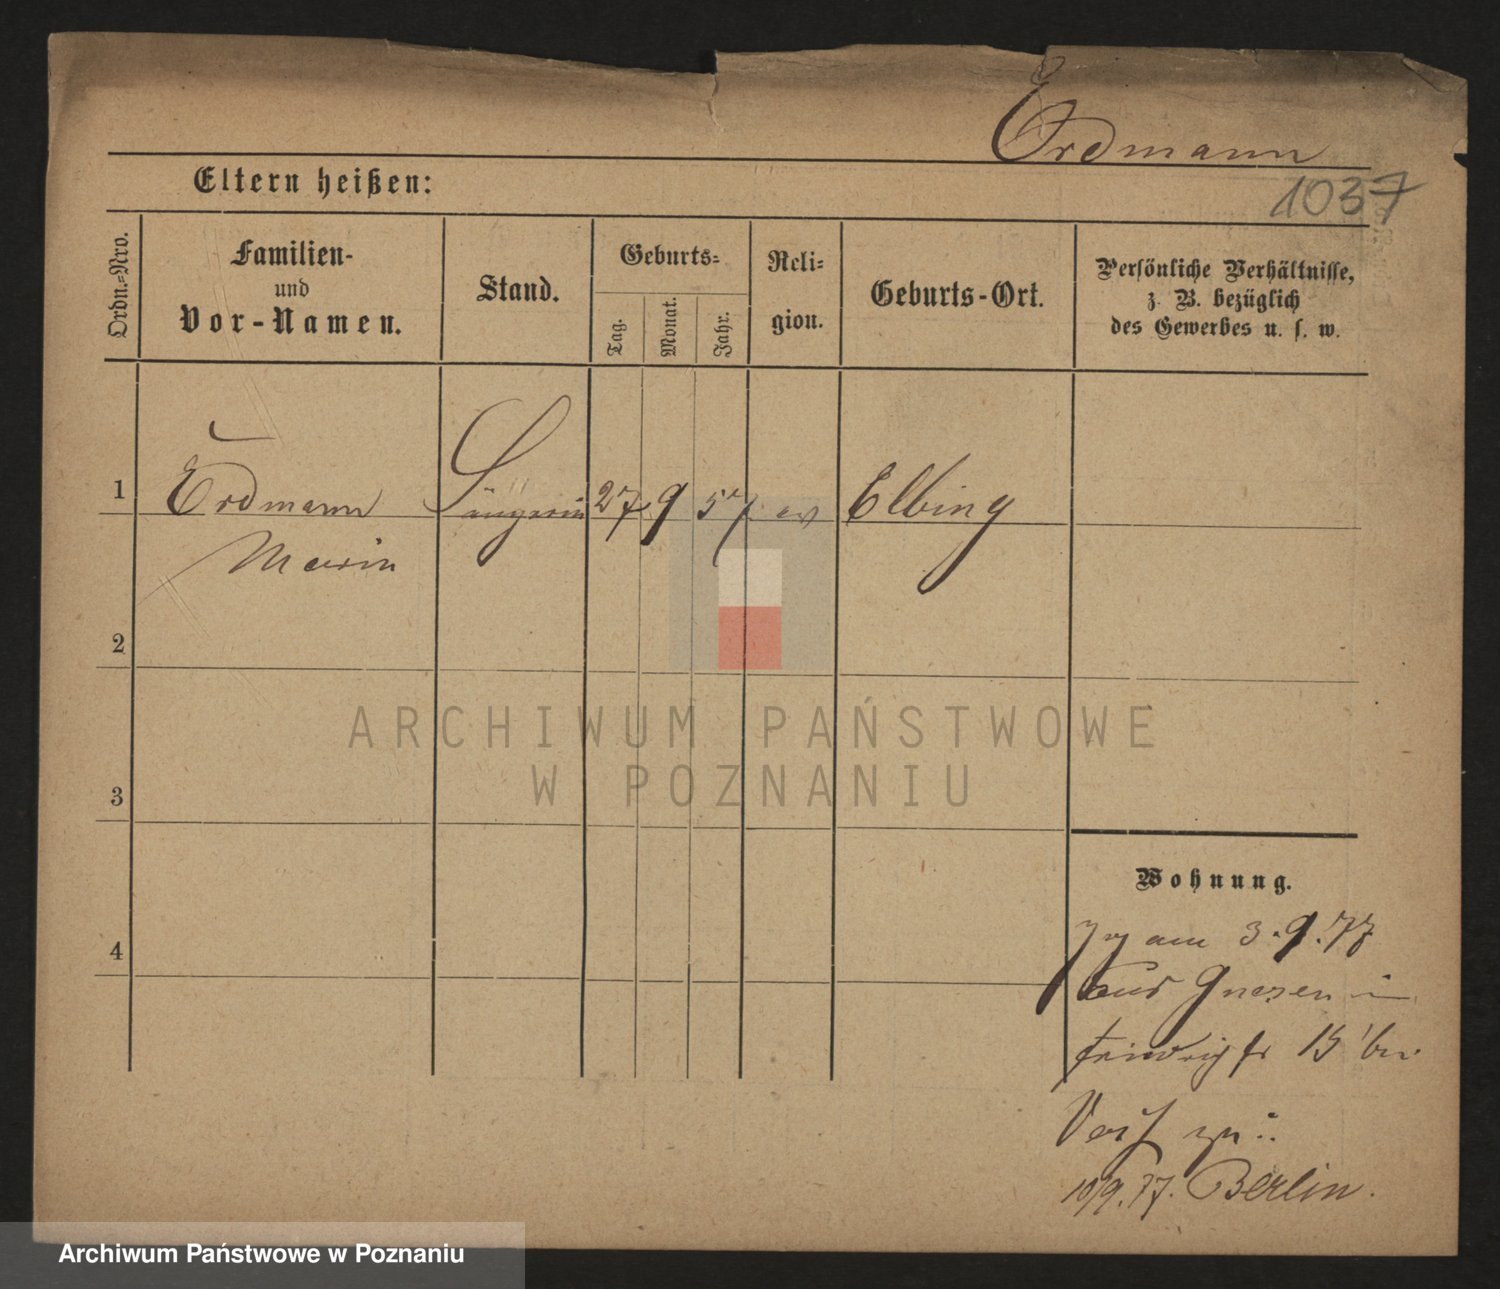 Erdmann
1037
Eltern heißen:
Ordn.-Nro.
Familien-
und
Vor-Namen.
Stand.
Geburts-
Tag.
Monat.
Jahr.
Reli-
gion.
Geburts-Ort.
Persönliche Verhältnisse,
z. B. bezüglich
des Gewerbes u. s. w.
1
Erdmann Sängerin 27 9 57 ev Elbing
Marie
2
3
4
ARCHIWUM PAŃSTWOWE
W POZNANIU
Wohnung.
am 3.9.77
aus Gnesen
15 bei
10/9.77. Berlin.
Archiwum Państwowe w Poznaniu